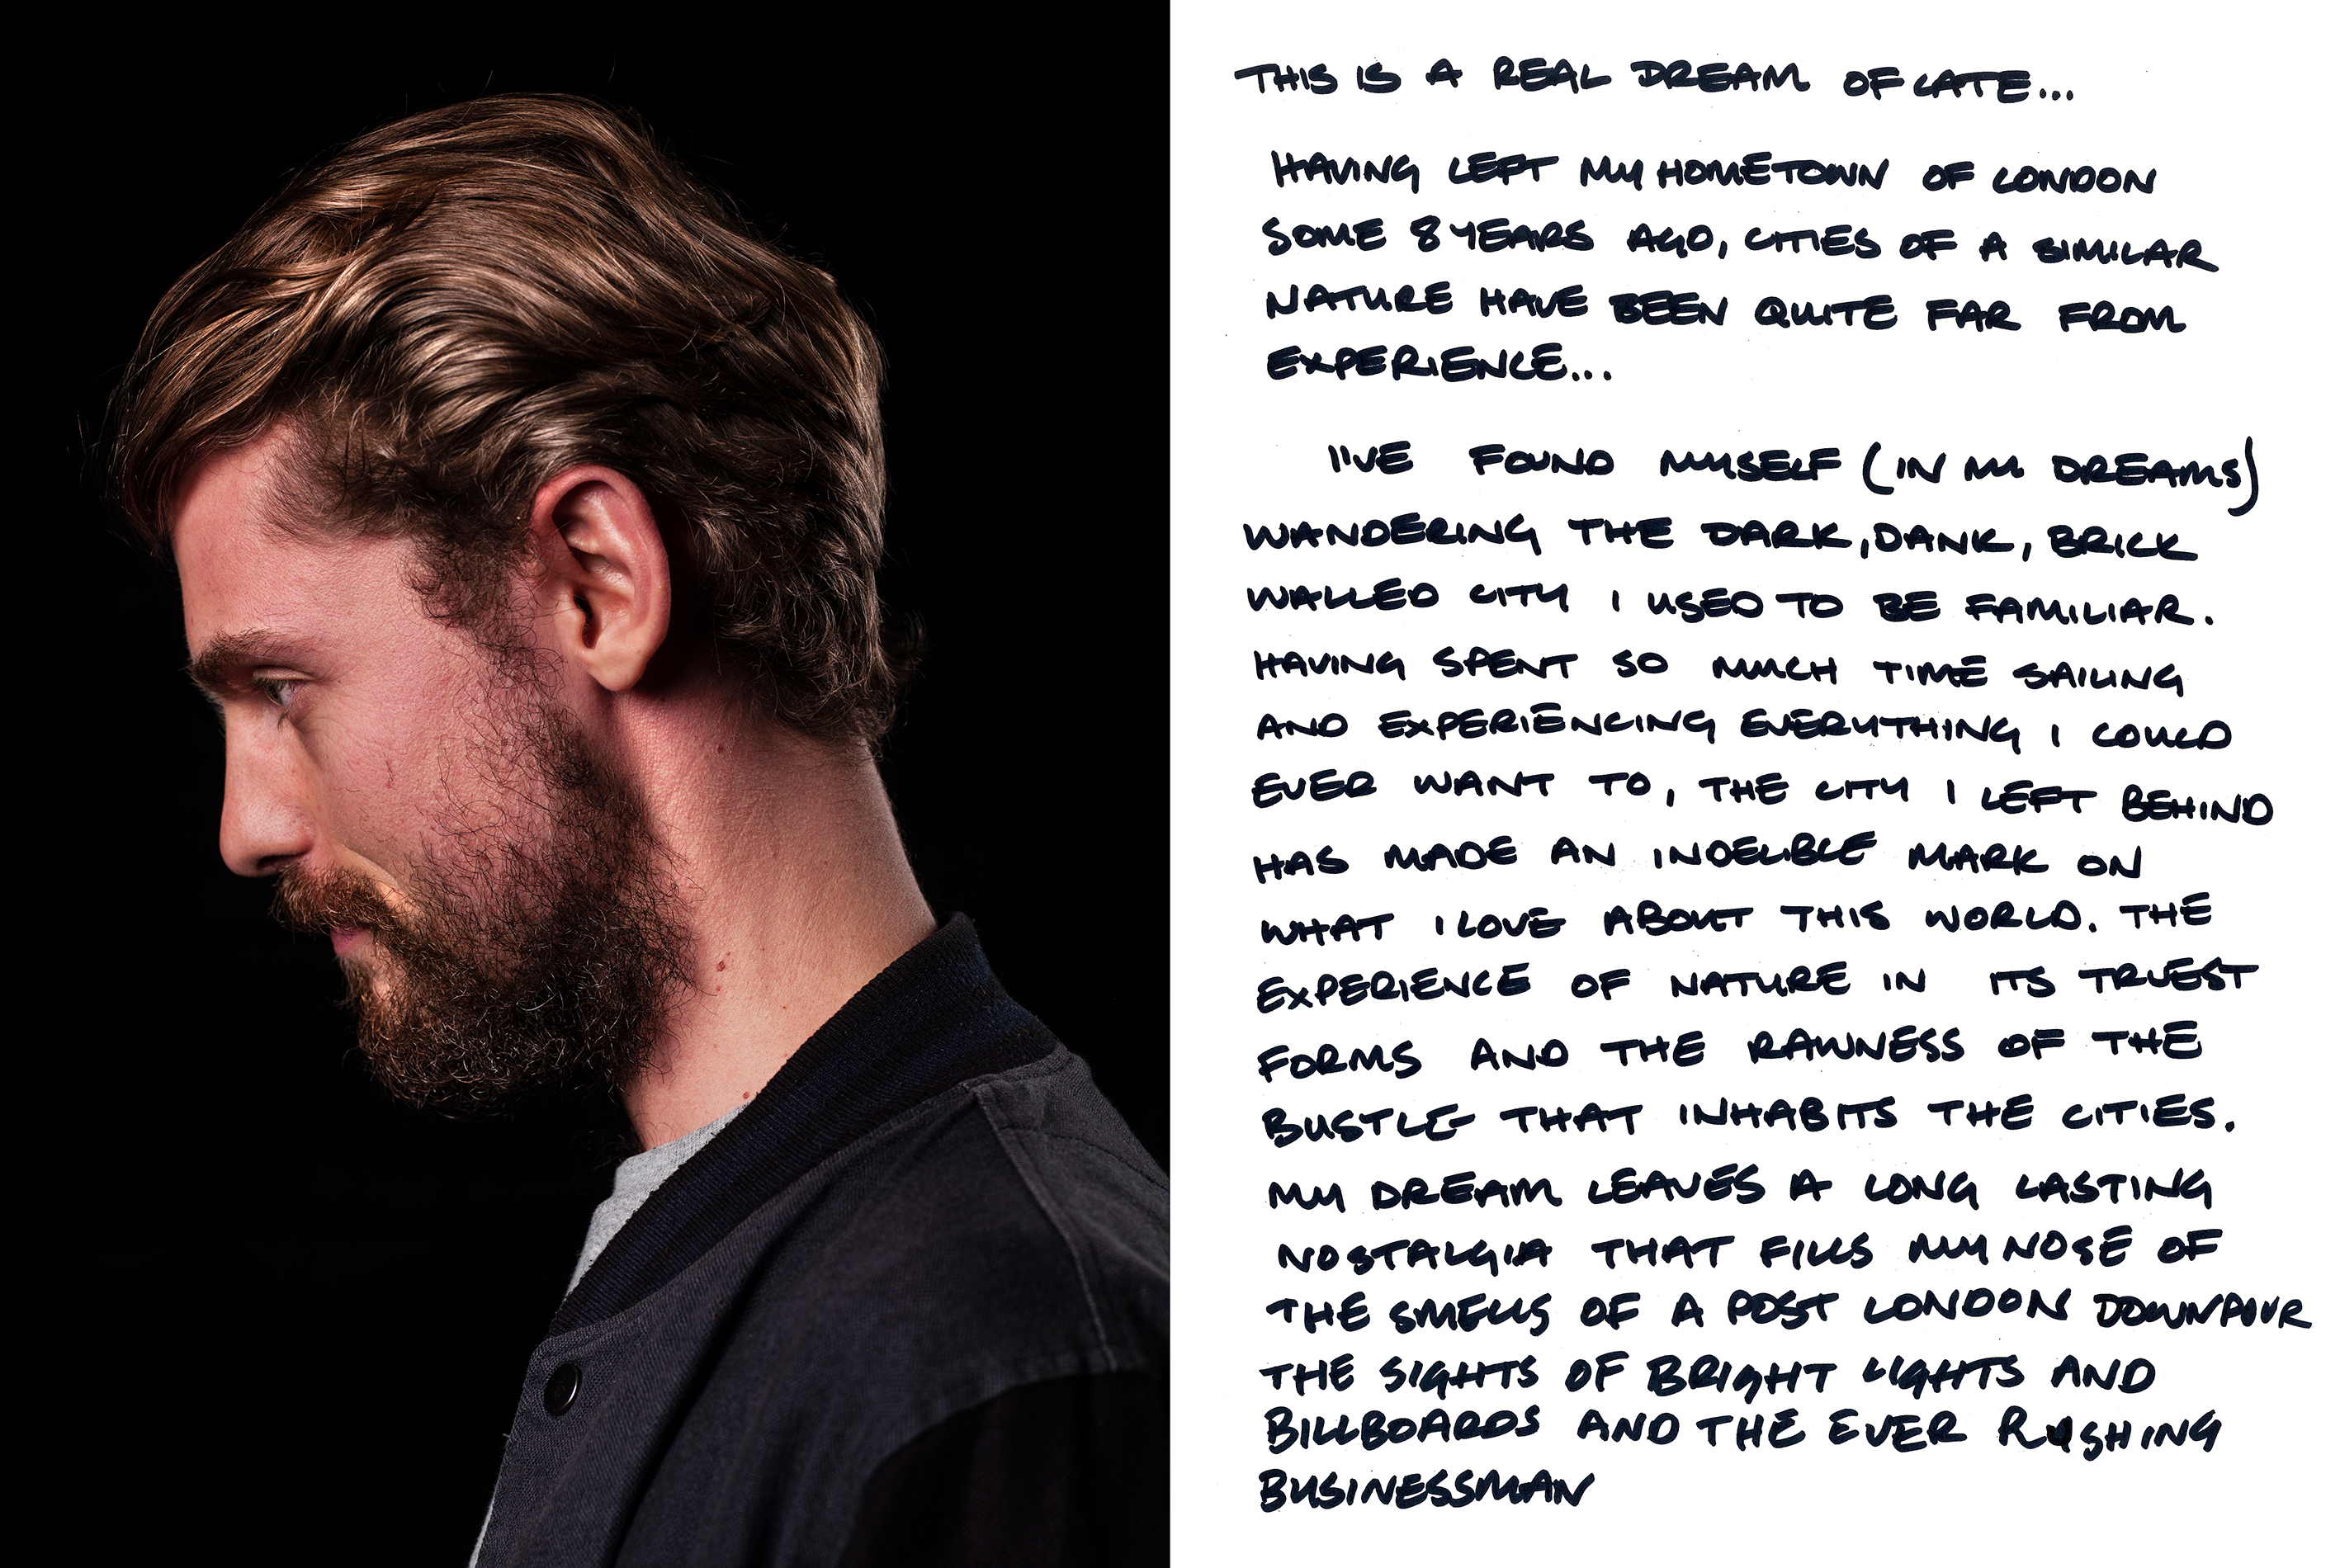 THIS IS A REAL DREAM OF LATE...
HAVING LEFT MY HOMETOWN OF LONDON
SOME 8 YEARS AGO, CITIES OF A SIMILAR
NATURE HAVE BEEN QUITE FAR FROM
EXPERIENCE...
I'VE FOUND MYSELF (IN MY DREAMS)
WANDERING THE DARK, DANK, BRICK
WALLED CITY I USED TO BE FAMILIAR.
HAVING SPENT SO MUCH TIME SAILING
AND EXPERIENCING EVERYTHING I COULD
EVER WANT TO, THE CITY I LEFT BEHIND
HAS MADE AN INDELIBLE MARK ON
WHAT I LOVE ABOUT THIS WORLD. THE
EXPERIENCE OF NATURE IN ITS TRUEST
FORMS AND THE RAWNESS OF THE
BUSTLE THAT INHABITS THE CITIES.
MY DREAM LEAVES A LONG LASTING
NOSTALGIA THAT FILLS MY NOSE OF
THE SMELLS OF A POST LONDON DOWNPOUR
THE SIGHTS OF BRIGHT LIGHTS AND
BILLBOARDS AND THE EVER RUSHING
BUSINESSMAN